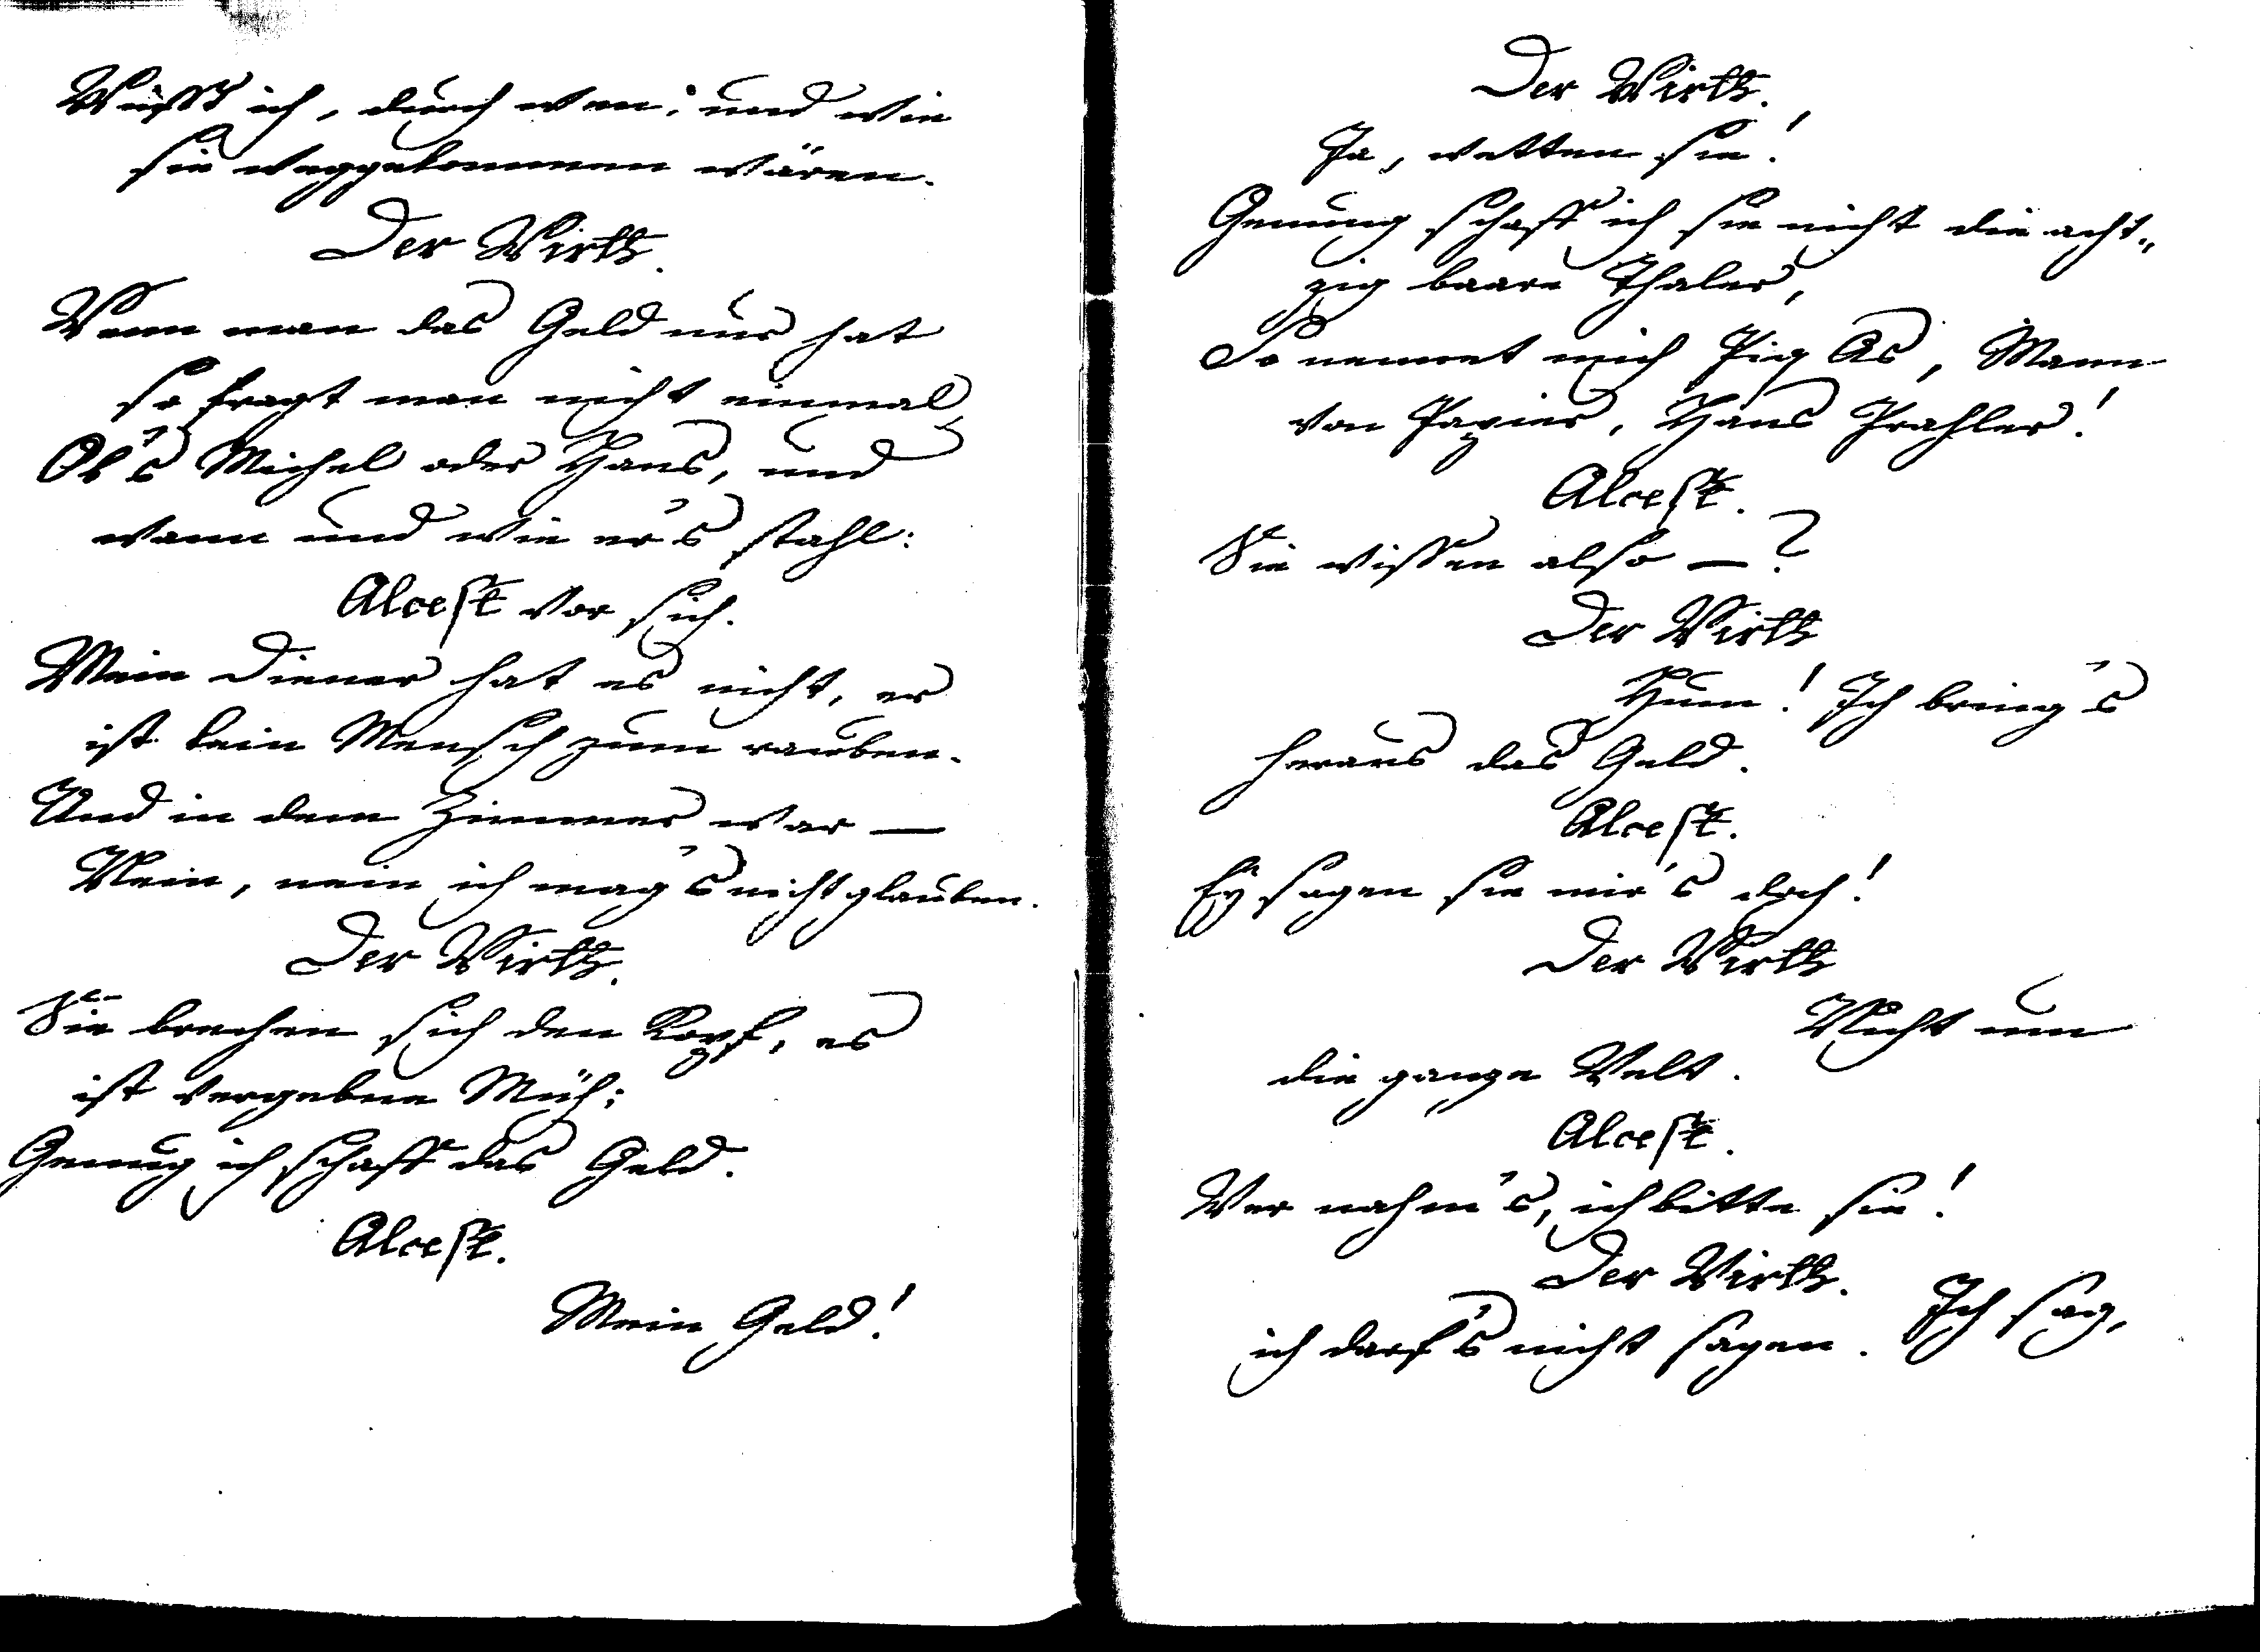 Wüsst ich, durch wen; und wie
sie weggekommen wären.
Der Wirth.
Wenn man das Geld nur hat
so fragt man nicht einmal,
Ob's Michel oder Hans, und
wann und wie er's stahl:
Alcest vor sich.
Mein Diener hat es nicht, er
ist kein Mensch zum rauben.
Und in dem Zimmer war —
Nein, nein ich mag's nicht glauben.
Der Wirth.
Sie brechen sich den Kopf, es
ist vergebne Müh;
Genug ich schaff das Geld.
Alcest.
Mein Geld!
Der Wirth.
Ja, wetten sie!
Genung schaff' ich sie nicht die acht„
zig baare Thaler,
So nennet mich Piq As, Mann
von Papier, Hans Prahler!
Alcest.
Sie wissen also —?
Der Wirth
Hum! Ich bring's
heraus das Geld.
Alcest.
Ey sagen sie mir's doch!
Der Wirth
Nicht um
die ganze Welt.
Alcest.
Wer nahm's, ich bitte sie!
Der Wirth.
Ich sag,
ich darf's nicht sagen.